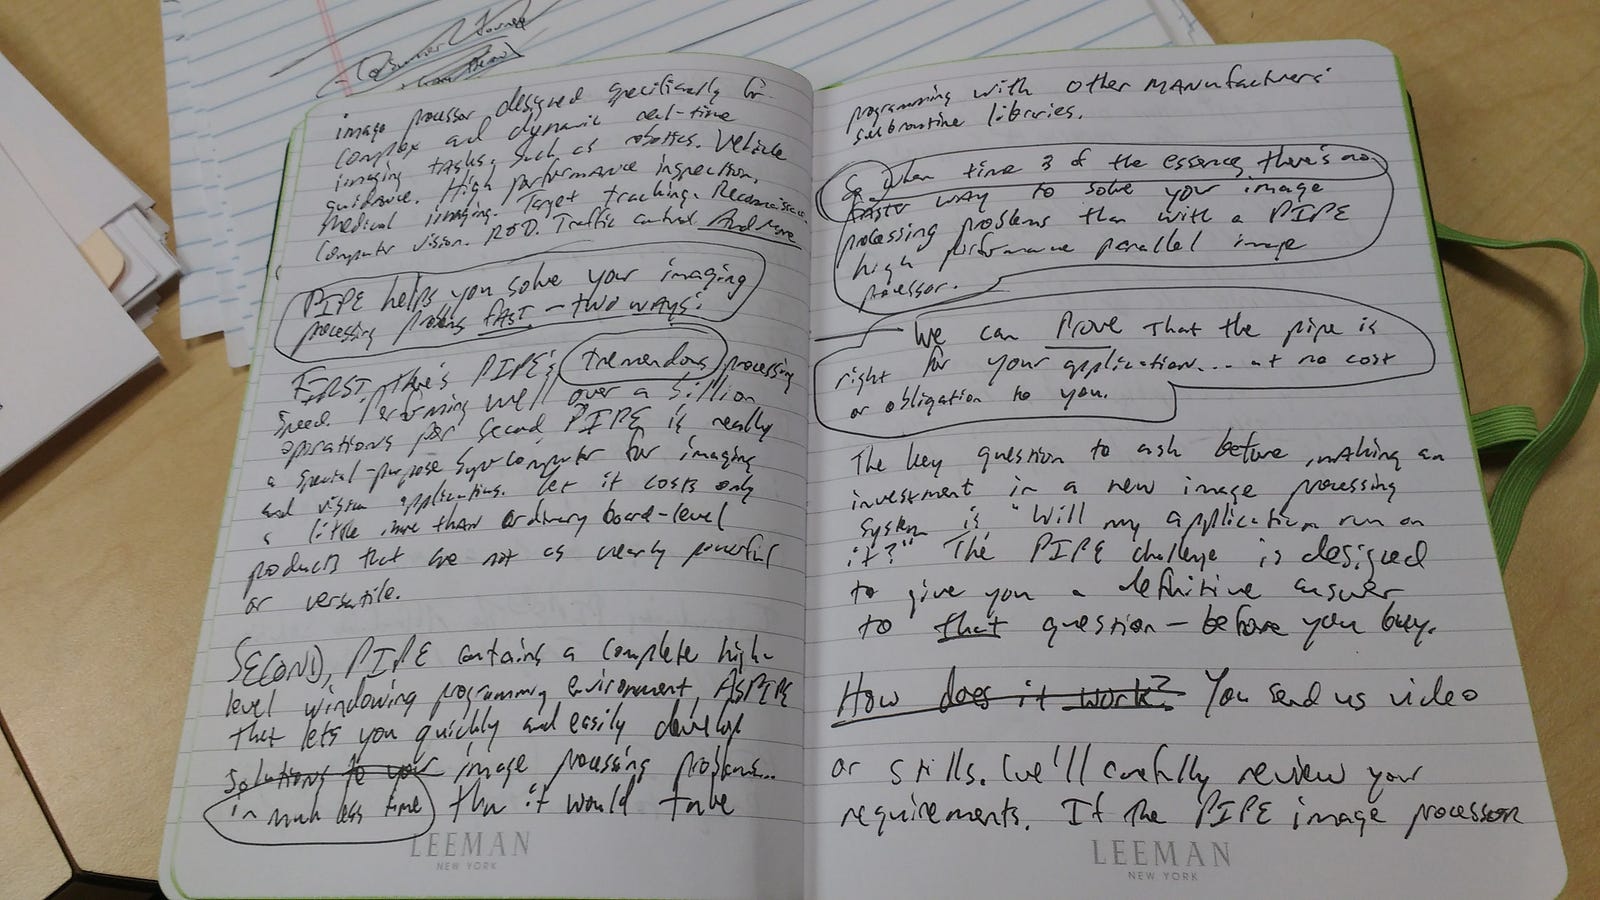 image processor designed specifically for
complex and dynamic real-time
imaging tasks, such as robotics. Vehicle
guidance. High performance inspection.
Medical imaging. Target tracking. Reconnaissance.
Computer vision. R&D. Traffic control. And More
PIPE helps you solve your imaging
processing problems FAST - two ways:
FIRST, there's PIPE's tremendous processing
speed. Performing well over a billion
operations per second, PIPE is really
a special-purpose supercomputer for imaging
and vision applications. Yet it costs only
a little more than ordinary board-level
products that are not as nearly powerful
or versatile.
SECOND, PIPE contains a complete high-
level windowing programming environment, ASPIPE
that lets you quickly and easily develop
solutions to your image processing problems...
in much less time than it would take
LEEMAN
NEW YORK
programming with other manufacturers'
subroutine libraries.
So when time is of the essence, there's no
faster way to solve your image
processing problems than with a PIPE
high performance parallel image
processor.
We can Prove that the pipe is
right for your application... at no cost
or obligation to you.
The key question to ask before making an
investment in a new image processing
system is "Will my application run on
it?" The PIPE challenge is designed
to give you a definitive answer
to that question - before you buy.
How does it work? You send us video
or stills. We'll carefully review your
requirements. If the PIPE image processor
LEEMAN
NEW YORK